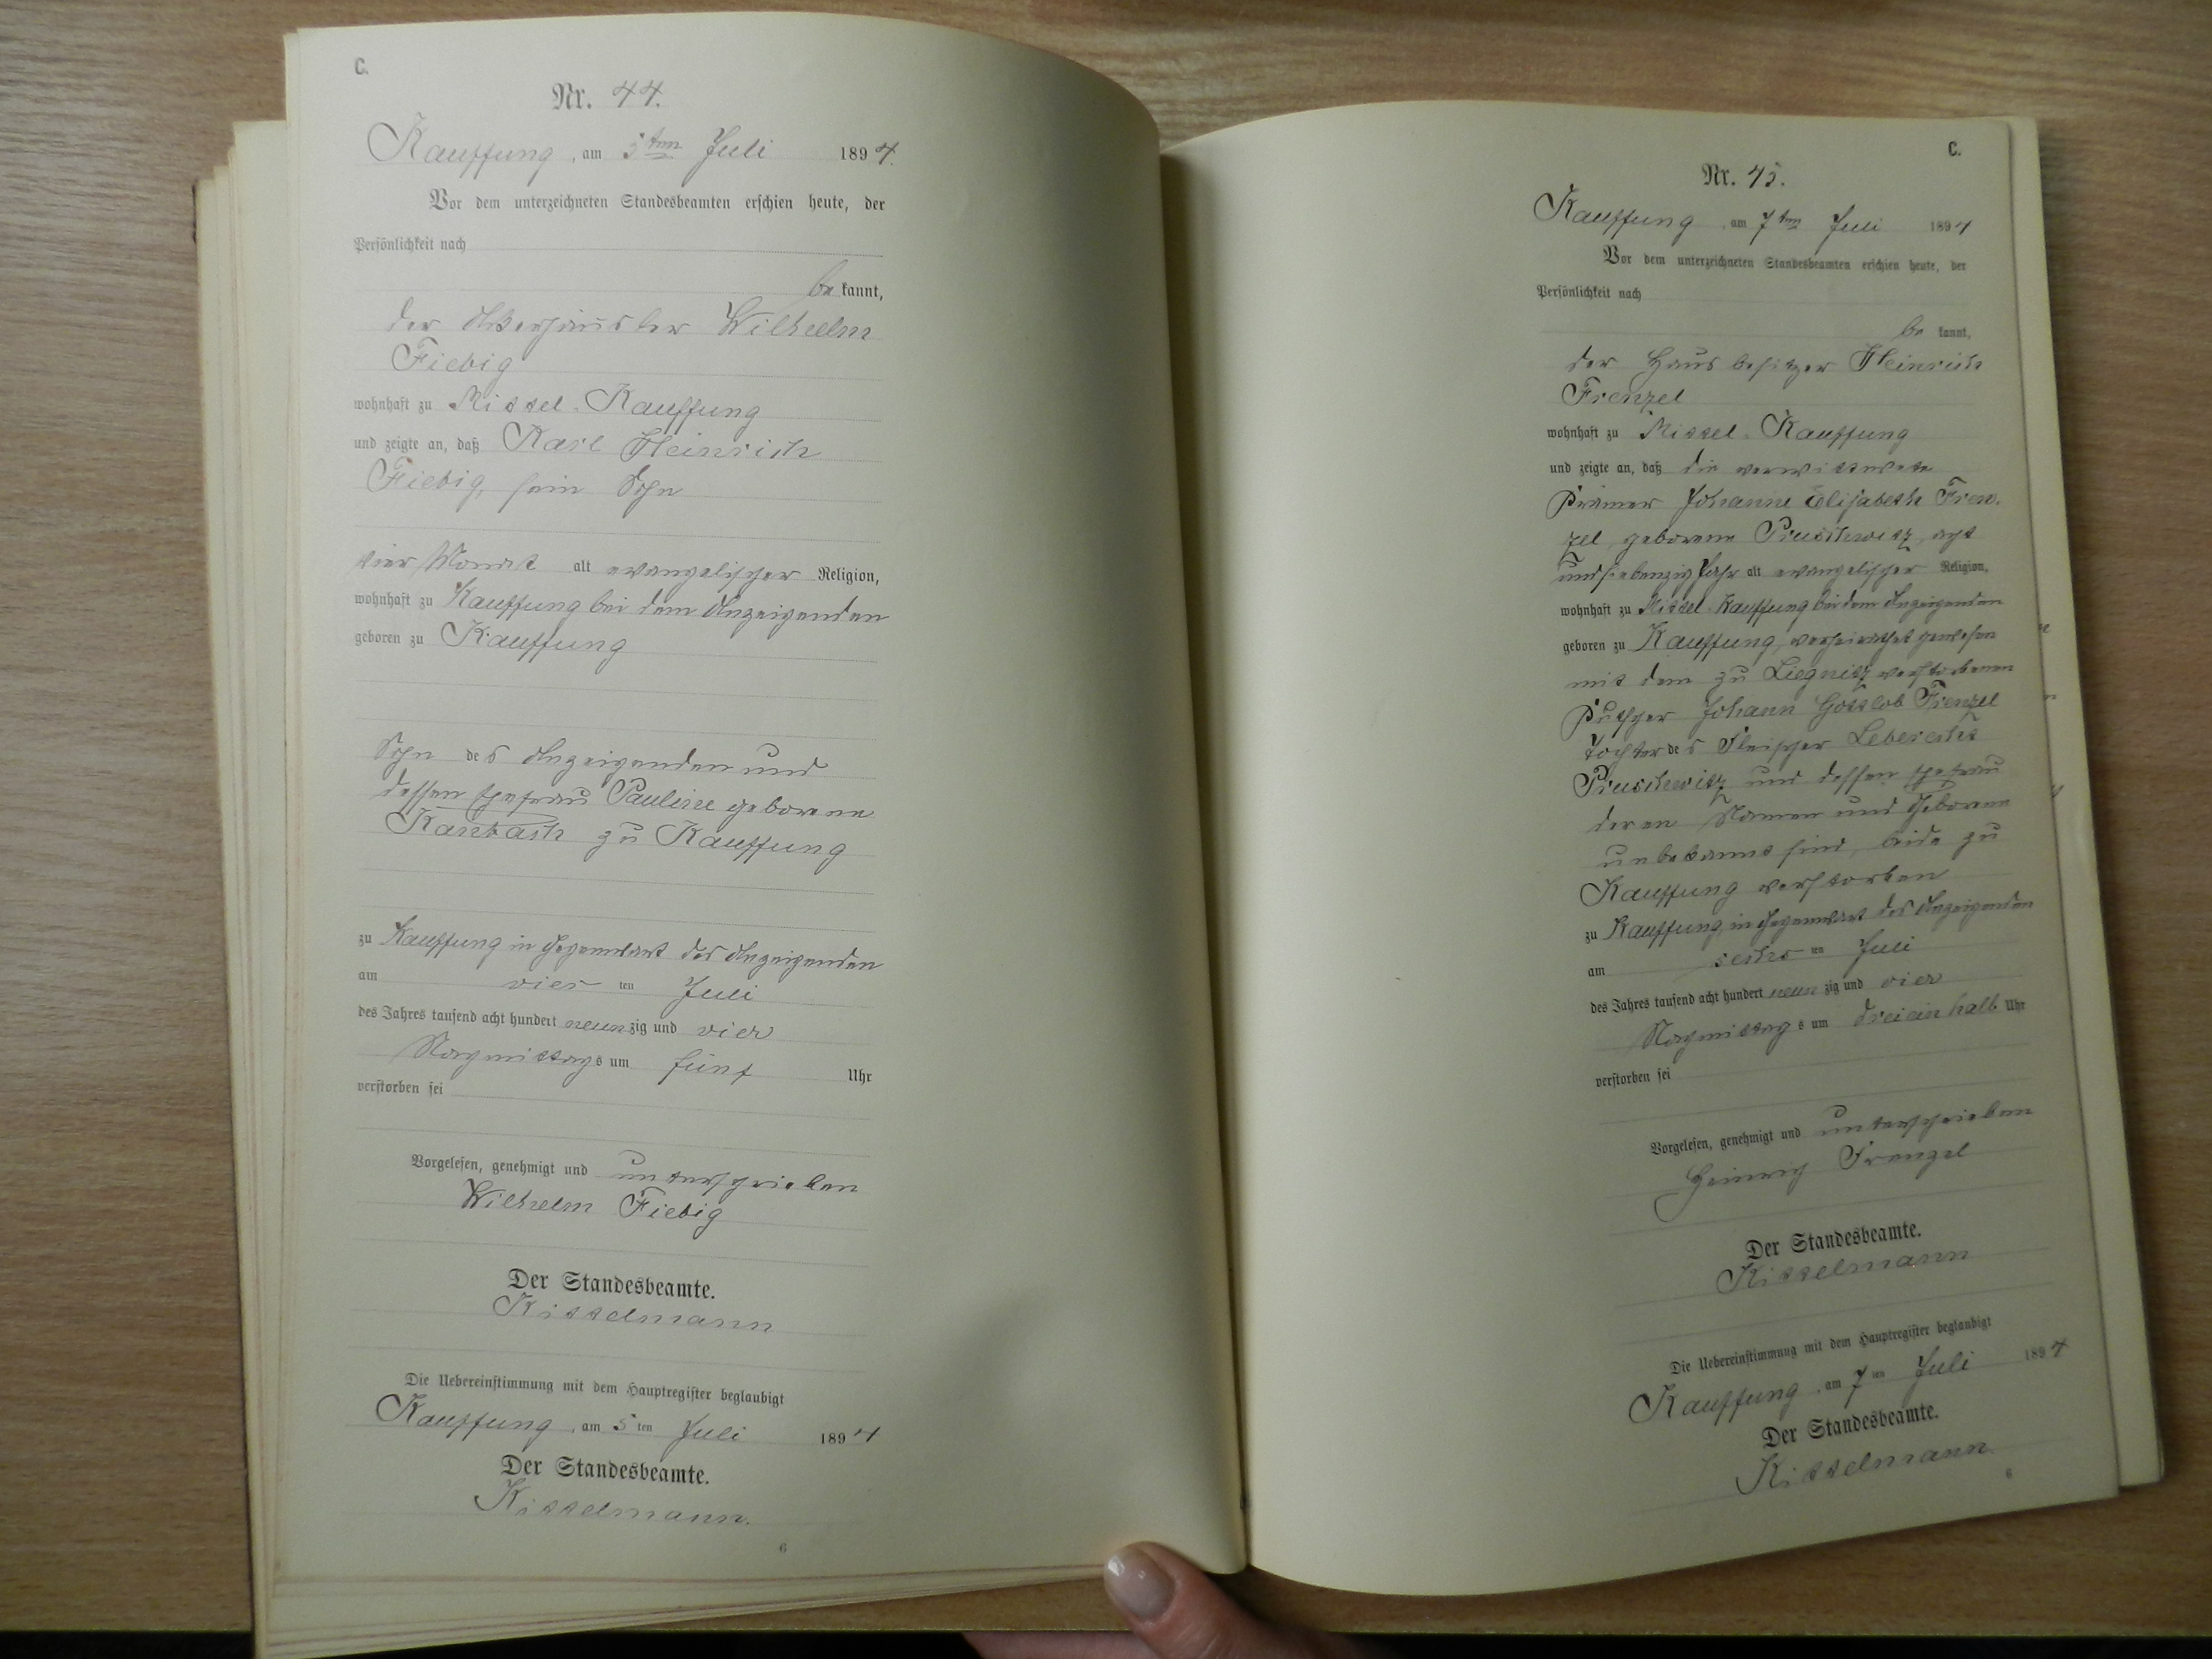 C.
Nr. 44.
Kauffung, am 5ten Juli 1894.
Vor dem unterzeichneten Standesbeamten erschien heute, der
Persönlichkeit nach
be kannt,
der Ackerhäusler Wilhelm
Fiebig
wohnhaft zu Mittel-Kauffung
und zeigte an, daß Karl Heinrich
Fiebig, sein Sohn
vier Monat alt evangelischer Religion,
wohnhaft zu Kauffung bei dem Anzeigenden
geboren zu Kauffung
Sohn des Anzeigenden und
dessen Ehefrau Pauline geborene
Kambach zu Kauffung
zu Kauffung in Gegenwart des Anzeigenden
am vier ten Juli
des Jahres tausend acht hundert neunzig und vier
Nachmittags um fünf Uhr
verstorben sei
Vorgelesen, genehmigt und unterschrieben
Wilhelm Fiebig
Der Standesbeamte.
Kittelmann
Die Uebereinstimmung mit dem Hauptregister beglaubigt
Kauffung, am 5ten Juli 1894
Der Standesbeamte.
Kittelmann.
6
C.
Nr. 45.
Kauffung, am 7ten Juli 1894
Vor dem unterzeichneten Standesbeamten erschien heute, der
Persönlichkeit nach
be kannt,
der Hausbesitzer Heinrich
Frenzel
wohnhaft zu Mittel-Kauffung
und zeigte an, daß die verwittwete
Johanne Elisabeth Fren-
zel, geborene Pruschwitz, acht
und siebenzig Jahr alt evangelischer Religion,
wohnhaft zu Mittel-Kauffung bei dem Anzeigenden
geboren zu Kauffung, verheirathet gewesen
mit dem zu Liegnitz verstorbenen
Johann Gottlob Frenzel
Tochter des Fleischer Leberecht
Pruschwitz und dessen Ehefrau
deren Namen und Geborene
unbekannt sind, beide zu
Kauffung verstorben
zu Kauffung, in Gegenwart des Anzeigenden
am sechs ten Juli
des Jahres tausend acht hundert neunzig und vier
Nachmittags um dreieinhalb Uhr
verstorben sei
Vorgelesen, genehmigt und unterschrieben
Heinrich Frenzel
Der Standesbeamte.
Kittelmann
Die Uebereinstimmung mit dem Hauptregister beglaubigt
Kauffung, am 7ten Juli 1894
Der Standesbeamte.
Kittelmann.
6